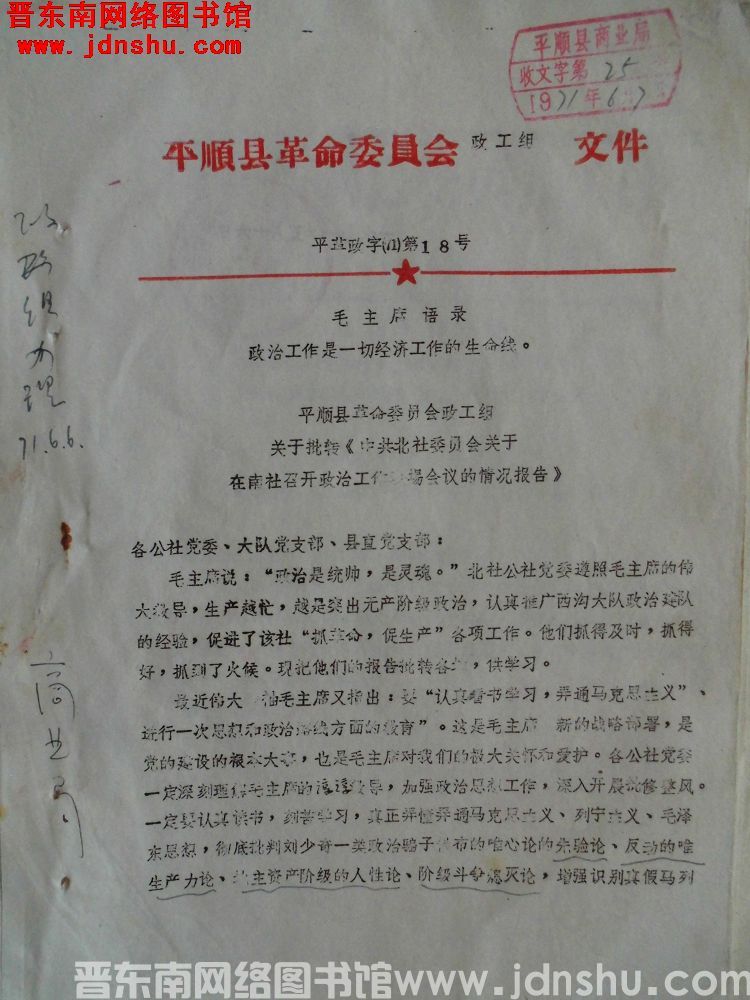 晋东南网络图书馆
www.jdnshu.com
平顺县商业局
收文字第25
1971年6 7
平順县革命委員会 政工组 文件
平革政字(71)第18号
毛主席语录
政治工作是一切经济工作的生命线。
平顺县革命委员会政工组
关于批转《中共北社委员会关于
在南社召开政治工作现場会议的情况报告》
各公社党委、大队党支部、县直党支部：
毛主席说：“政治是统帅，是灵魂。”北社公社党委遵照毛主席的伟
大教导，生产越忙，越是突出无产阶级政治，认真推广西沟大队政治建队
的经验，促进了该社“抓革命，促生产”各项工作。他们抓得及时，抓得
好，抓到了火候。现把他们的报告批转各 ，供学习。
最近伟大 袖毛主席又指出：要“认真看书学习，弄通马克思主义”、
进行一次思想和政治路线方面的教育”。这是毛主席 新的战略部署，是
党的建设的根本大事，也是毛主席对我们的极大关怀和爱护。各公社党委
一定深刻理解毛主席的谆谆教导，加强政治思想工作，深入开展批修整风。
一定要认真读书，刻苦学习，真正弄懂弄通马克思主义、列宁主义、毛泽
东思想，彻底批判刘少奇一类政治骗子 布的唯心论的先验论、反动的唯
生产力论、地主资产阶级的人性论、阶级斗争熄灭论，增强识别真假马列
政组办理
71.6.6.
商业局
晋东南网络图书馆www.jdnshu.com